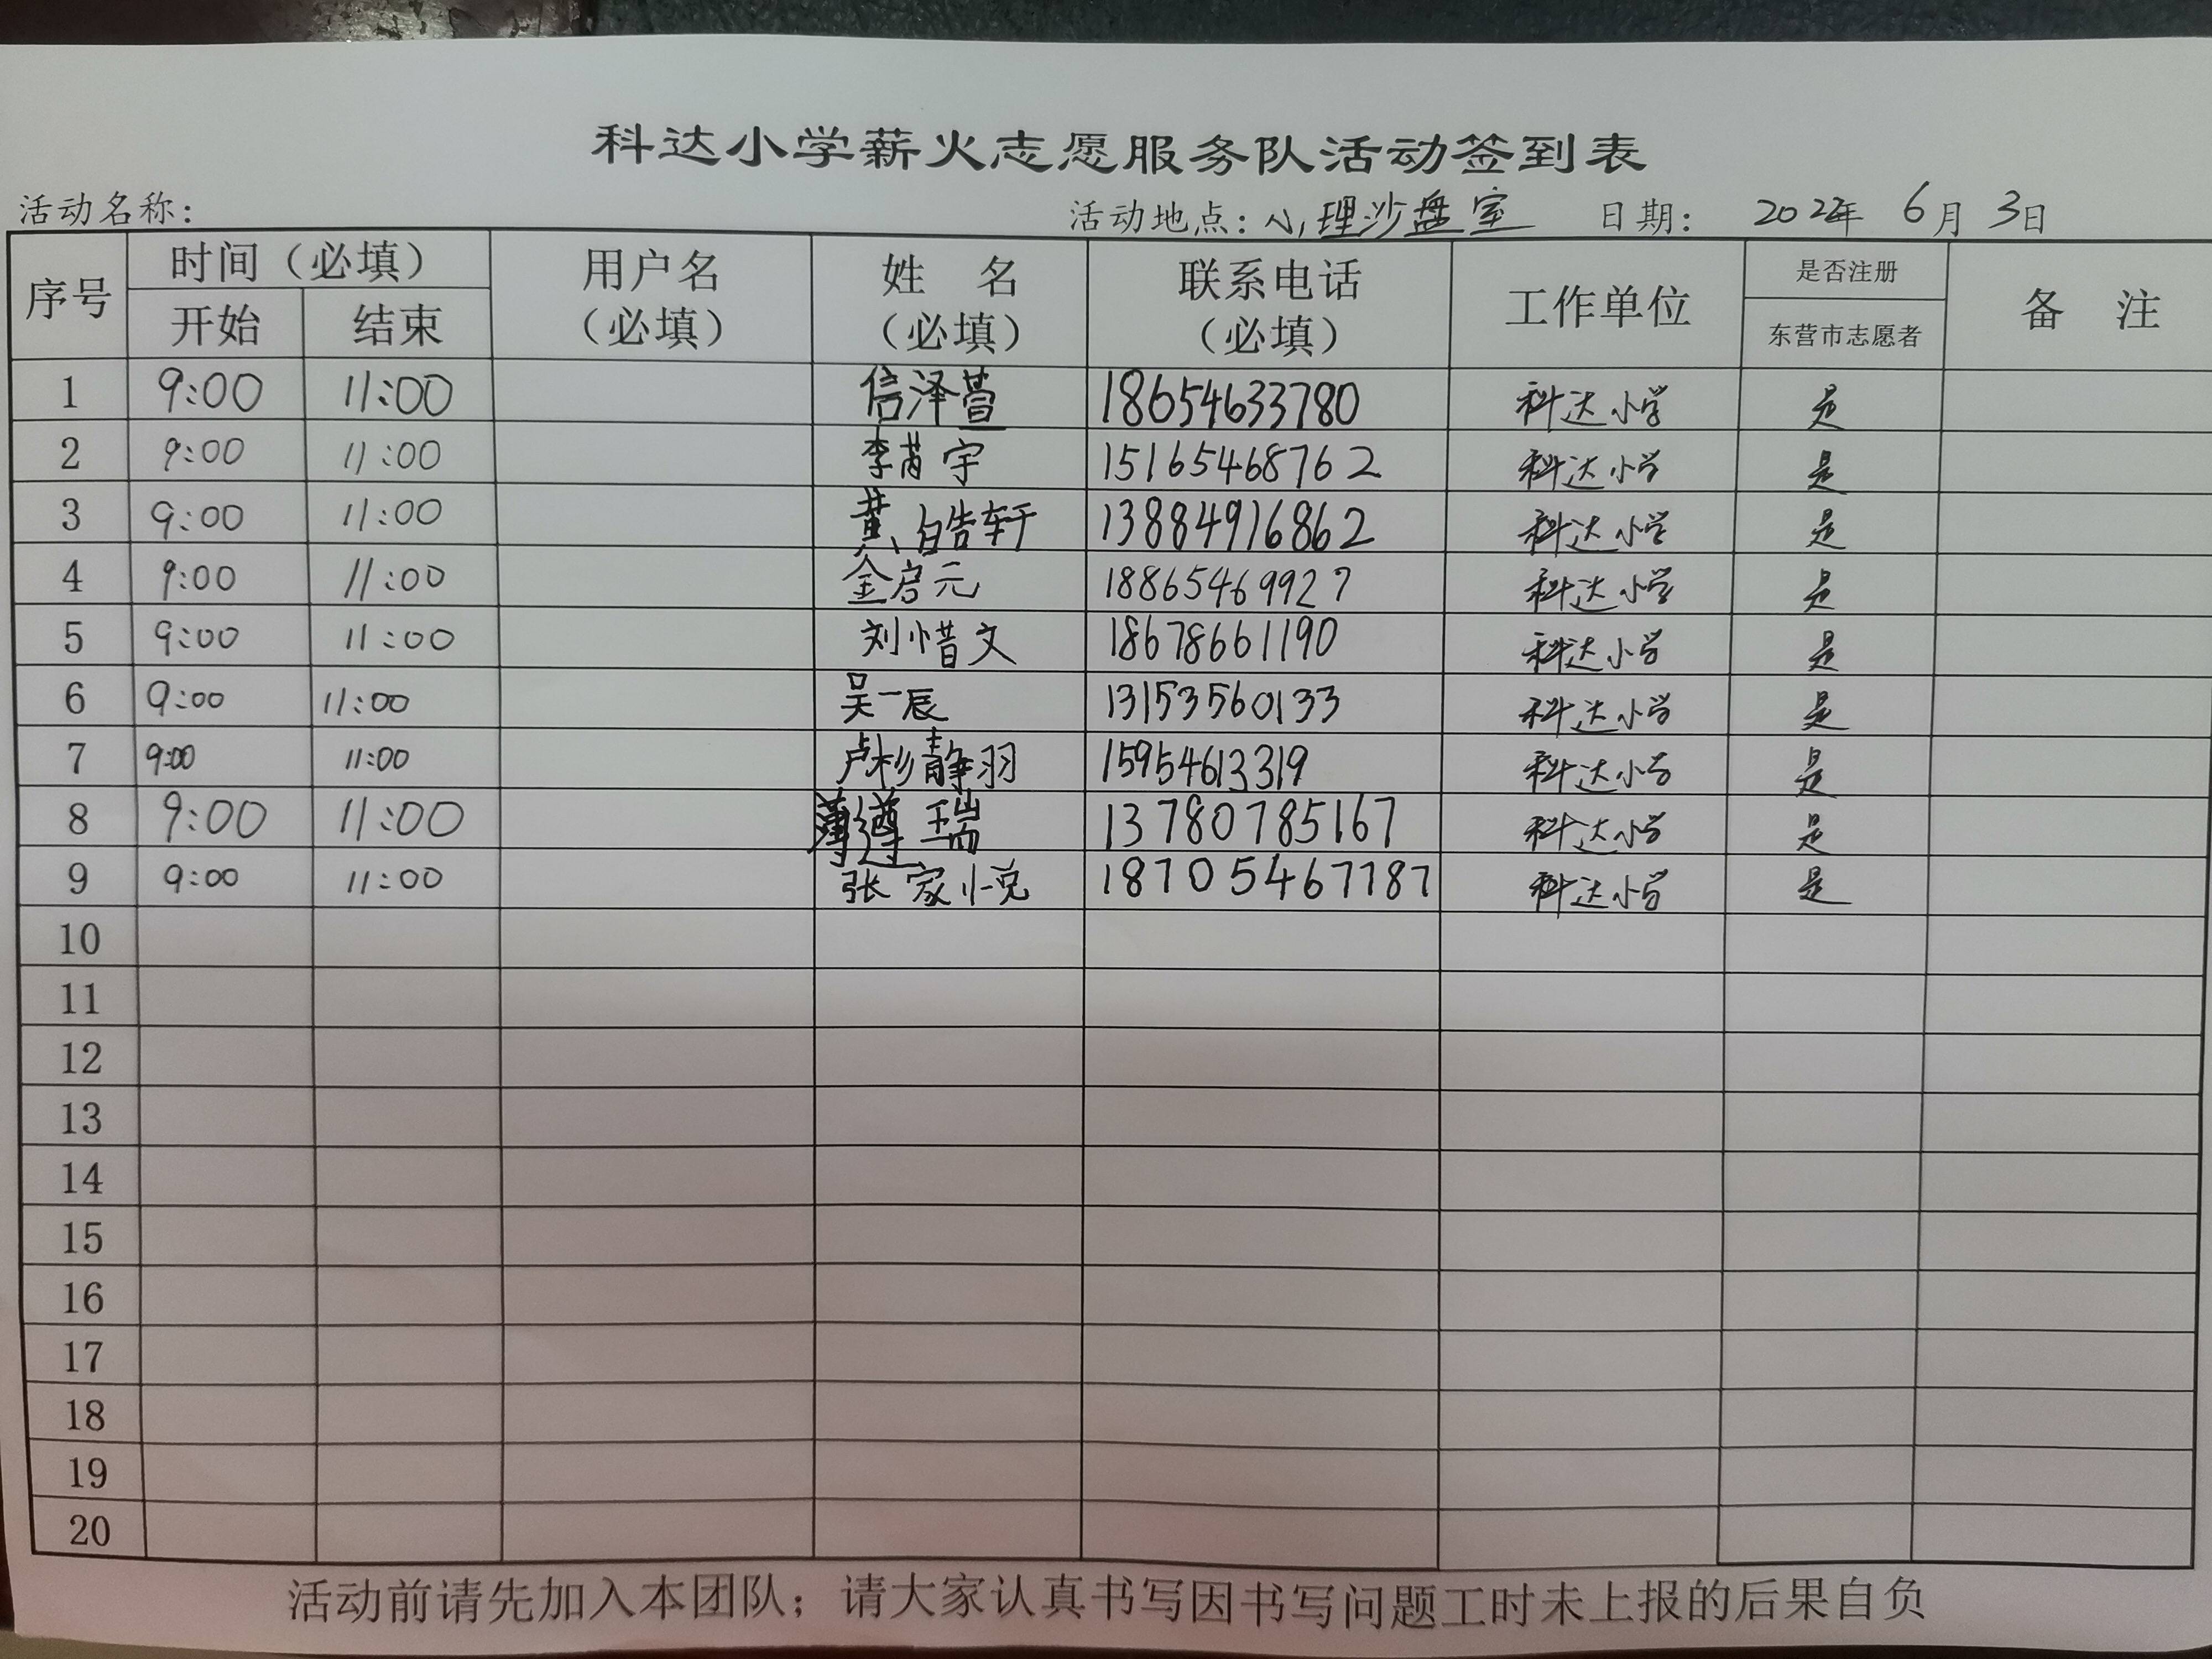 科达小学薪火志愿服务队活动签到表
活动名称： 活动地点：心理沙盘室 日期： 2022年 6月 3日
序号 时间（必填） 用户名（必填） 姓 名（必填） 联系电话（必填） 工作单位 是否注册 备 注
开始 结束 东营市志愿者
1 9:00 11:00 信泽萱 18654633780 科达小学 是
2 9:00 11:00 李芮宇 15165468762 科达小学 是
3 9:00 11:00 黄皓轩 13884916862 科达小学 是
4 9:00 11:00 金启元 18865469927 科达小学 是
5 9:00 11:00 刘惜文 18678661190 科达小学 是
6 9:00 11:00 吴一辰 13153560133 科达小学 是
7 9:00 11:00 卢杉静羽 15954613319 科达小学 是
8 9:00 11:00 薄遵瑞 13780785167 科达小学 是
9 9:00 11:00 张家悦 18705467787 科达小学 是
10
11
12
13
14
15
16
17
18
19
20
活动前请先加入本团队；请大家认真书写因书写问题工时未上报的后果自负